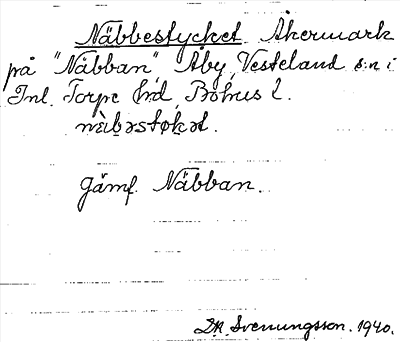 Näbbestycket Åkermark
på "Näbban", Åby, Vesteland s:n i
Inl. Torpe hd, Bohus l.
nèibəstøkət.
Jämf. Näbban.
Svenungsson. 1940.